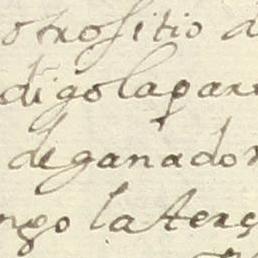 otro sitio d
digo la par
de ganador
ngo la terç